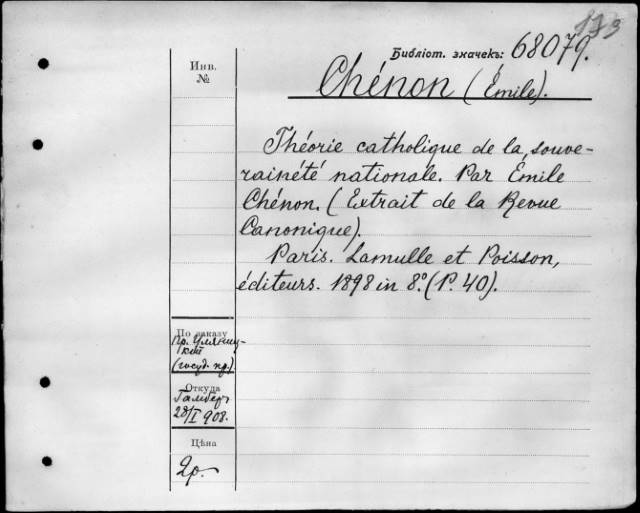 133
Библіот. значекъ: 68079.
Инв.
№
Chénon (Émile).
Théorie catholique de la souve-
raineté nationale. Par Émile
Chénon. (Extrait de la Revue
Canonique).
Paris. Lamulle et Poisson,
éditeurs. 1898 in 8.º (P. 40).
По заказу
Пр. Уляниц-
кій
(госуд. пр.).
Откуда
28/I 908.
Цѣна
2р.